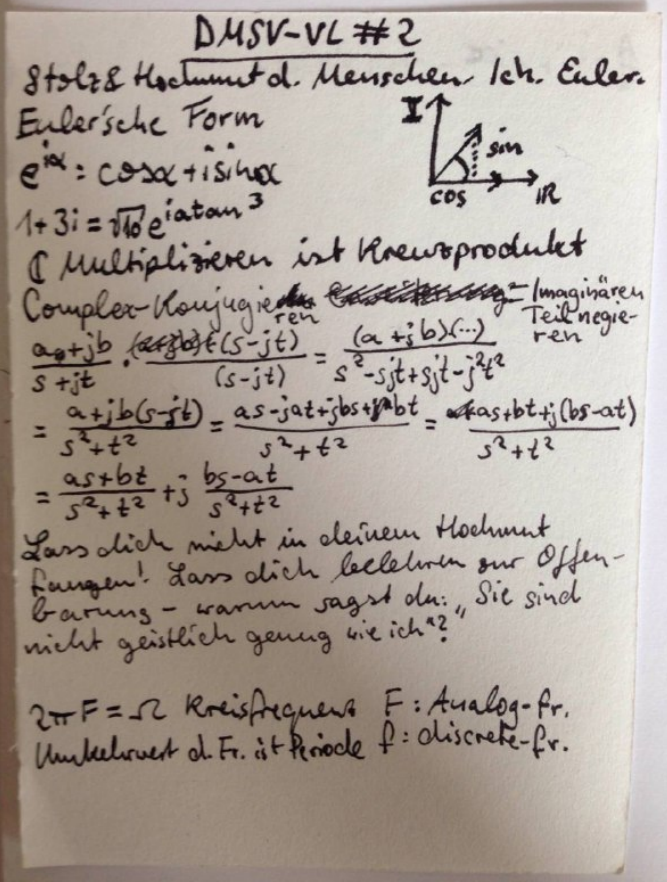 DMSV-VL #2
Stolz & Hochmut d. Menschen. Ich. Euler.
Euler'sche Form
e^{iα} = cosα + i sinα
I
sin
cos
IR
1+3i = √10 e^{i atan 3}
ℂ Multiplizieren ist Kreuzprodukt
Complex-Konjugieren = Imaginären
Teil negieren
(a+jb)/(s+jt) · (s-jt)/(s-jt) = (a+jb)(...)/(s²-sjt+sjt-j²t²)
= a+jb(s-jt)/(s²+t²) = (as-jat+jbs+bt)/(s²+t²) = (as+bt+j(bs-at))/(s²+t²)
= (as+bt)/(s²+t²) + j (bs-at)/(s²+t²)
Lass dich nicht in deinem Hochmut
fangen! Lass dich belehren zur Offen-
barung - warum sagst du: „Sie sind
nicht geistlich genug wie ich"?
2πF = Ω Kreisfrequenz F: Analog-fr.
Umkehrwert d. Fr. ist Periode f: discrete-fr.